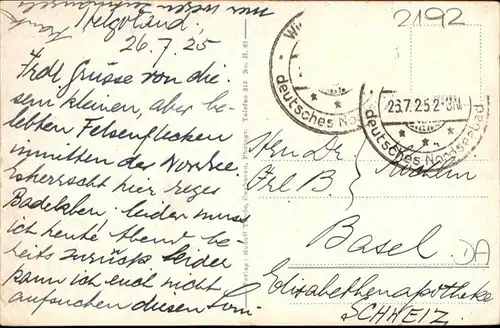 Helgoland,
26.7.25
Frdl Grüsse von die-
sem kleinen, aber be-
lebten Felsenflecken
inmitten der Nordsee.
Es herrscht hier reges
Badeleben, leider muss
ich heute Abend be-
reits zurück. Leider
kann ich euch nicht
aufsuchen diesen Som-
2192
deutsches No
26.7.25.2-3N.
deutsches Nordseebad
Hrn Dr.
Frl B
Basel
Elisabethenapotheke
SCHWEIZ.
DA